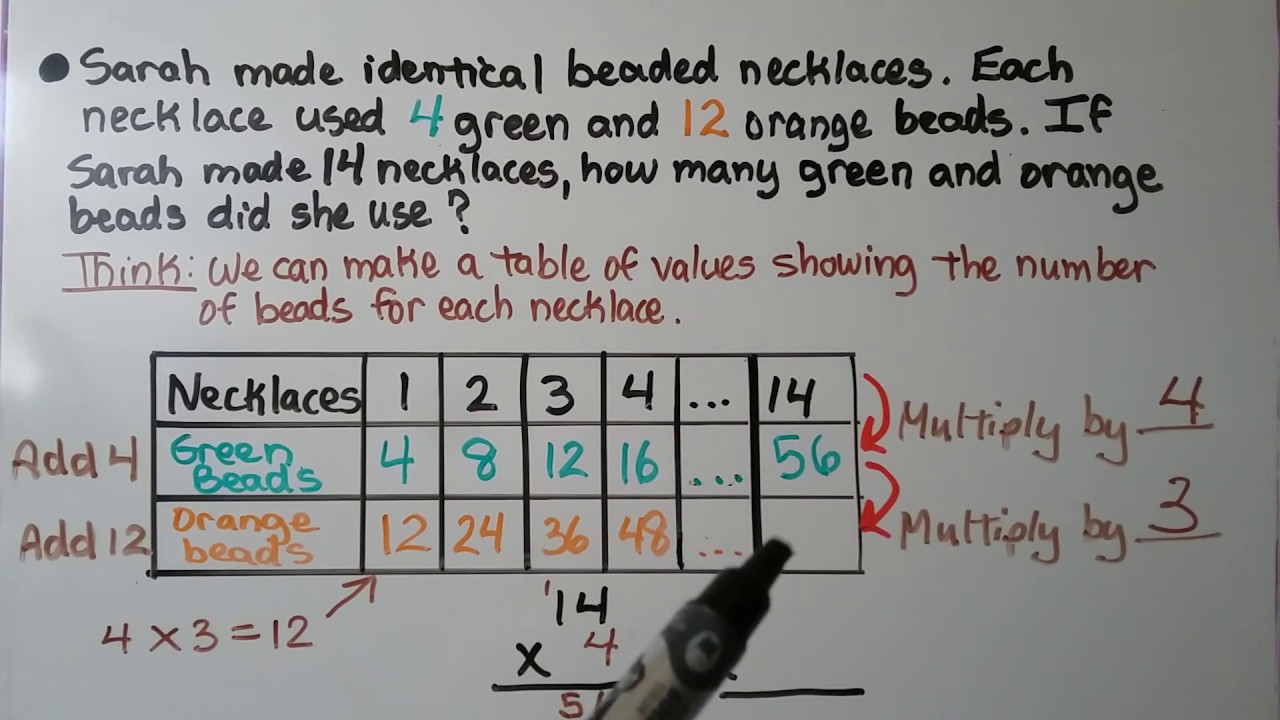 • Sarah made identical beaded necklaces. Each
necklace used 4 green and 12 orange beads. If
Sarah made 14 necklaces, how many green and orange
beads did she use?
Think: We can make a table of values showing the number
of beads for each necklace.
Necklaces 1 2 3 4 ... 14
Multiply by 4
Add 4 Green Beads 4 8 12 16 .... 56
Multiply by 3
Add 12 Orange beads 12 24 36 48 ....
4 x 3 = 12
1
14
x 4
5